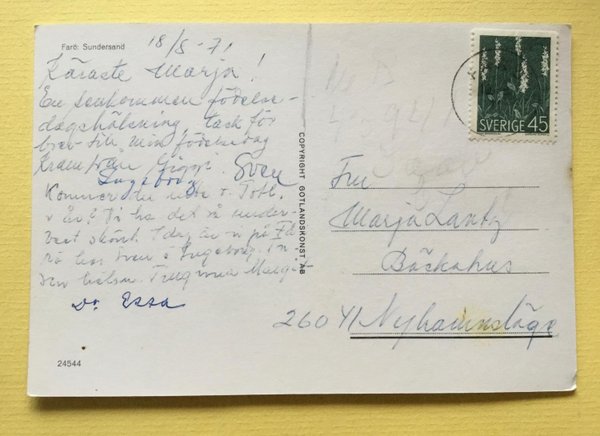 Farö: Sundersand
18/5-71
Käraste Marja!
En senkommen födelse-
dagshälsning, tack för
brev till min födelsedag
Kram från
Sven
Ingeborg
Kommer du
v år? Vi ha det så under-
bart skönt. Idag är vi på Få-
rö hos Sven o Ingeborg.
den hälsn.
Dr Essa
24544
COPYRIGHT GOTLANDSKONST AB
SVERIGE 45
Fru
Marja Lantz
Bäckahus
260 41 Nyhamnsläge